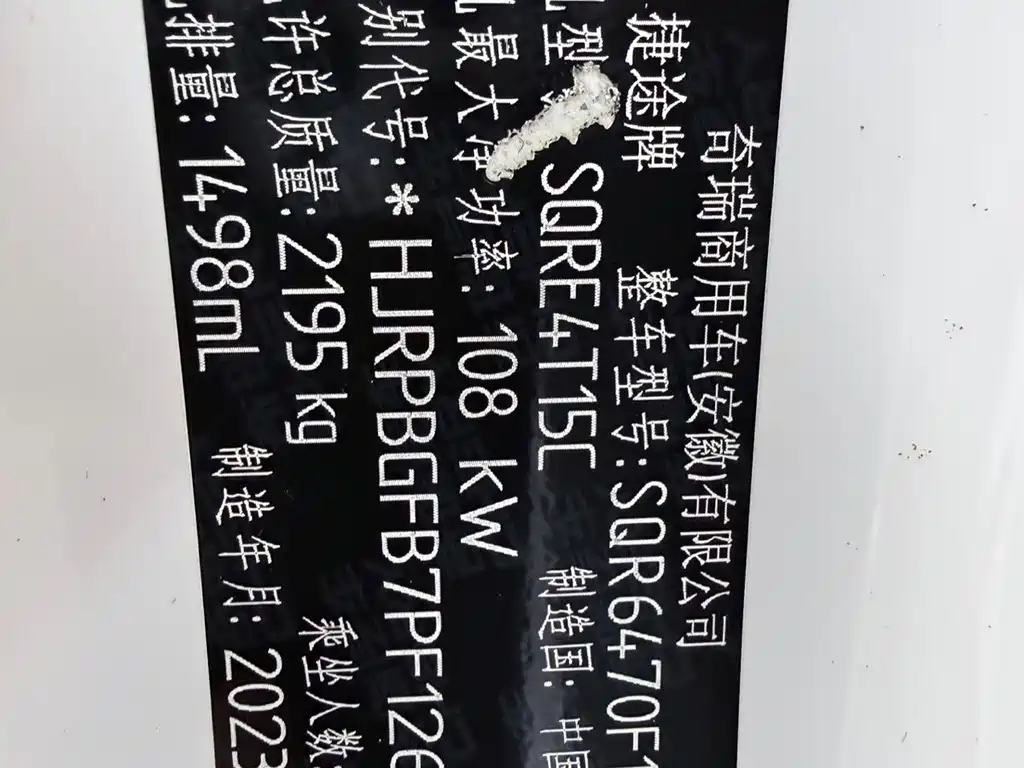 奇瑞商用车(安徽)有限公司
捷途牌 整车型号:SQR6470F1
型 SQRE4T15C 制造国: 中国
最大净功率: 108 kW
别代号:*HJRPBGFB7PF126
许总质量:2195kg 乘坐人数:
排量:1498mL 制造年月:2023